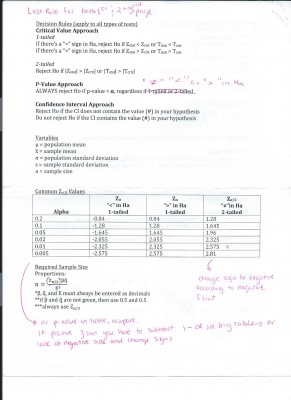 Decision Rules (apply to all types of tests)
Critical Value Approach
1-tailed
If there's a "<" sign in Ha, reject Ho if Zstat < Zcrit or Tstat < Tcrit
If there's a ">" sign in Ha, reject Ho if Zstat > Zcrit or Tstat > Tcrit
2-tailed
Reject Ho if |Zstat| > |Zcrit| or |Tstat| > |Tcrit|
"≠" "<" or ">" in Ha
P-Value Approach
ALWAYS reject Ho if p-value < α, regardless if 1-tailed or 2-tailed.
Confidence Interval Approach
Reject Ho if the CI does not contain the value (#) in your hypothesis
Do not reject Ho if the CI contains the value (#) in your hypothesis
Variables
μ = population mean
x̄ = sample mean
σ = population standard deviation
s = sample standard deviation
n = sample size
Common Zα/2 Values
Alpha Zα "<" in Ha 1-tailed Zα ">" in Ha 1-tailed Zα/2 "≠" in Ha 2-tailed
0.2 -0.84 0.84 1.28
0.1 -1.28 1.28 1.645
0.05 -1.645 1.645 1.96
0.02 -2.055 2.055 2.325
0.01 -2.325 2.325 2.575
0.005 -2.575 2.575 2.81
Required Sample Size
Proportions:
*p̂, q̂, and E must always be entered as decimals
**If p̂ and q̂ are not given, then use 0.5 and 0.5
***always use Zα/2
change sign to negative
according to negative
z stat
* or p value in table, compare
if positive z stat you have to subtract 1 - α in big tables or
look @ negative side and change signs